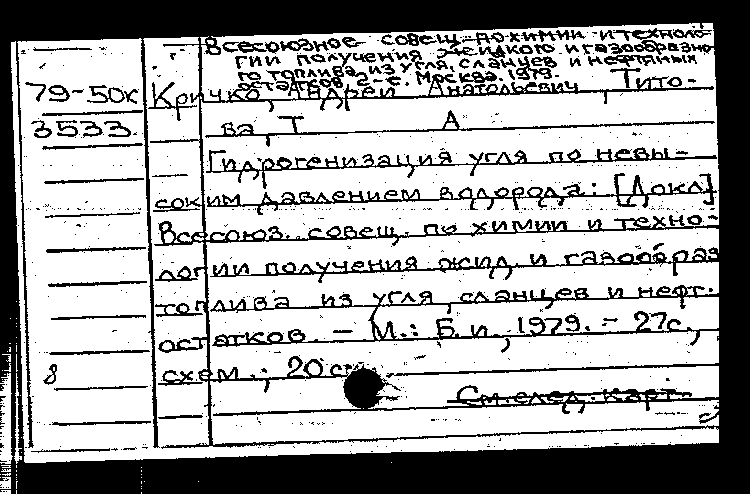 Всесоюзное совещ. по химии и техноло-
гии получения жидкого и газообразно-
го топлива из угля, сланцев и нефтяных
остатков, 2-е. Москва. 1979.
79-50к Кричко, Андрей Анатольевич, Тито-
3533 ва, Т А
Гидрогенизация угля по невы-
соким давлением водорода: [Докл]
Всесоюз. совещ. по химии и техно-
логии получения жид. и газообраз
топлива из угля, сланцев и нефт.
остатков. - М.: Б. и., 1979. - 27с.,
8 схем.; 20 см
См. след. карт.